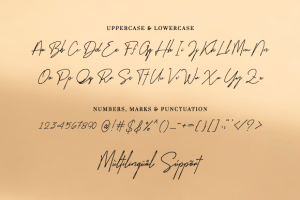 UPPERCASE & LOWERCASE
Aa Bb Cc Dd Ee Ff Gg Hh Ii Jj Kk Ll Mm Nn
Oo Pp Qq Rr Ss Tt Uu Vv Ww Xx Yy Zz
NUMBERS, MARKS & PUNCTUATION
Multilingual Support